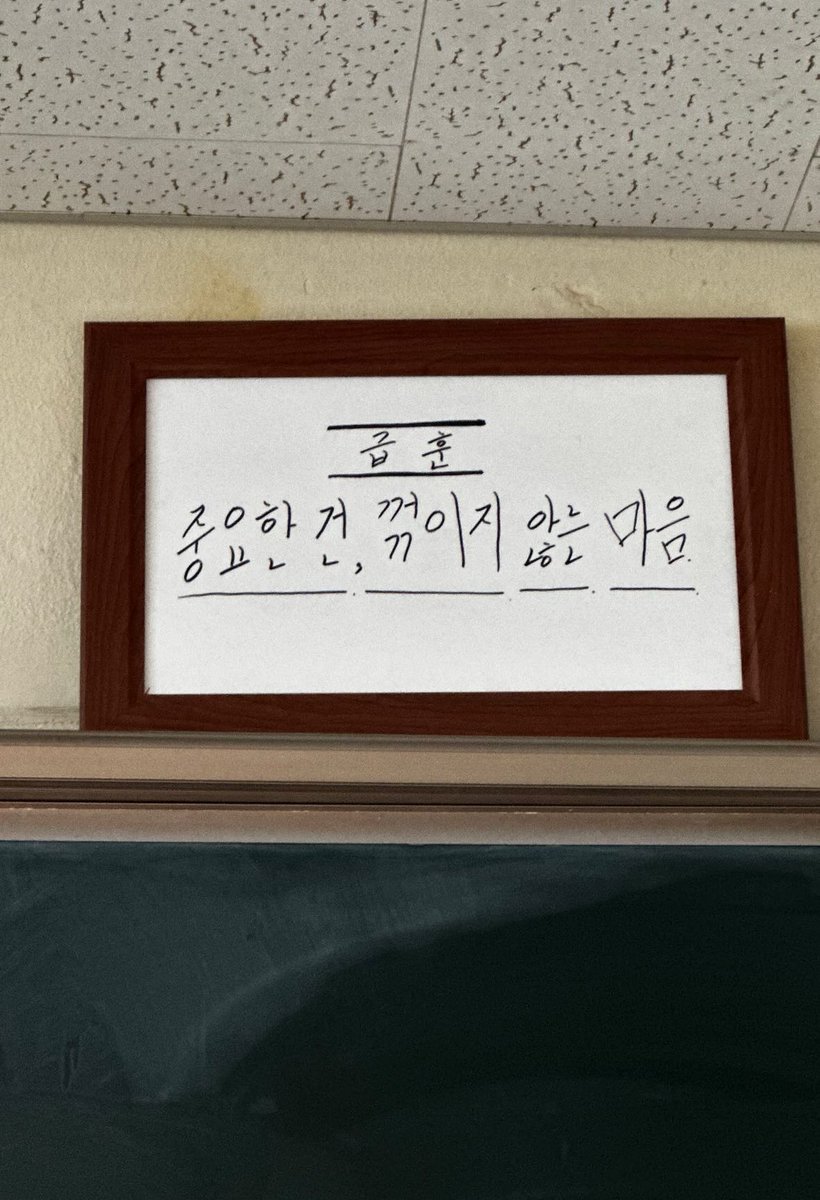 급 훈
중요한 건, 꺾이지 않는 마음